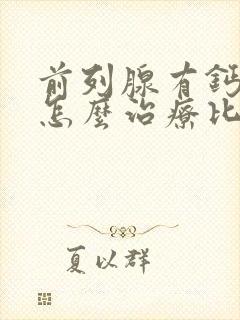 前列腺有鈣
怎麼治療比
夏以群